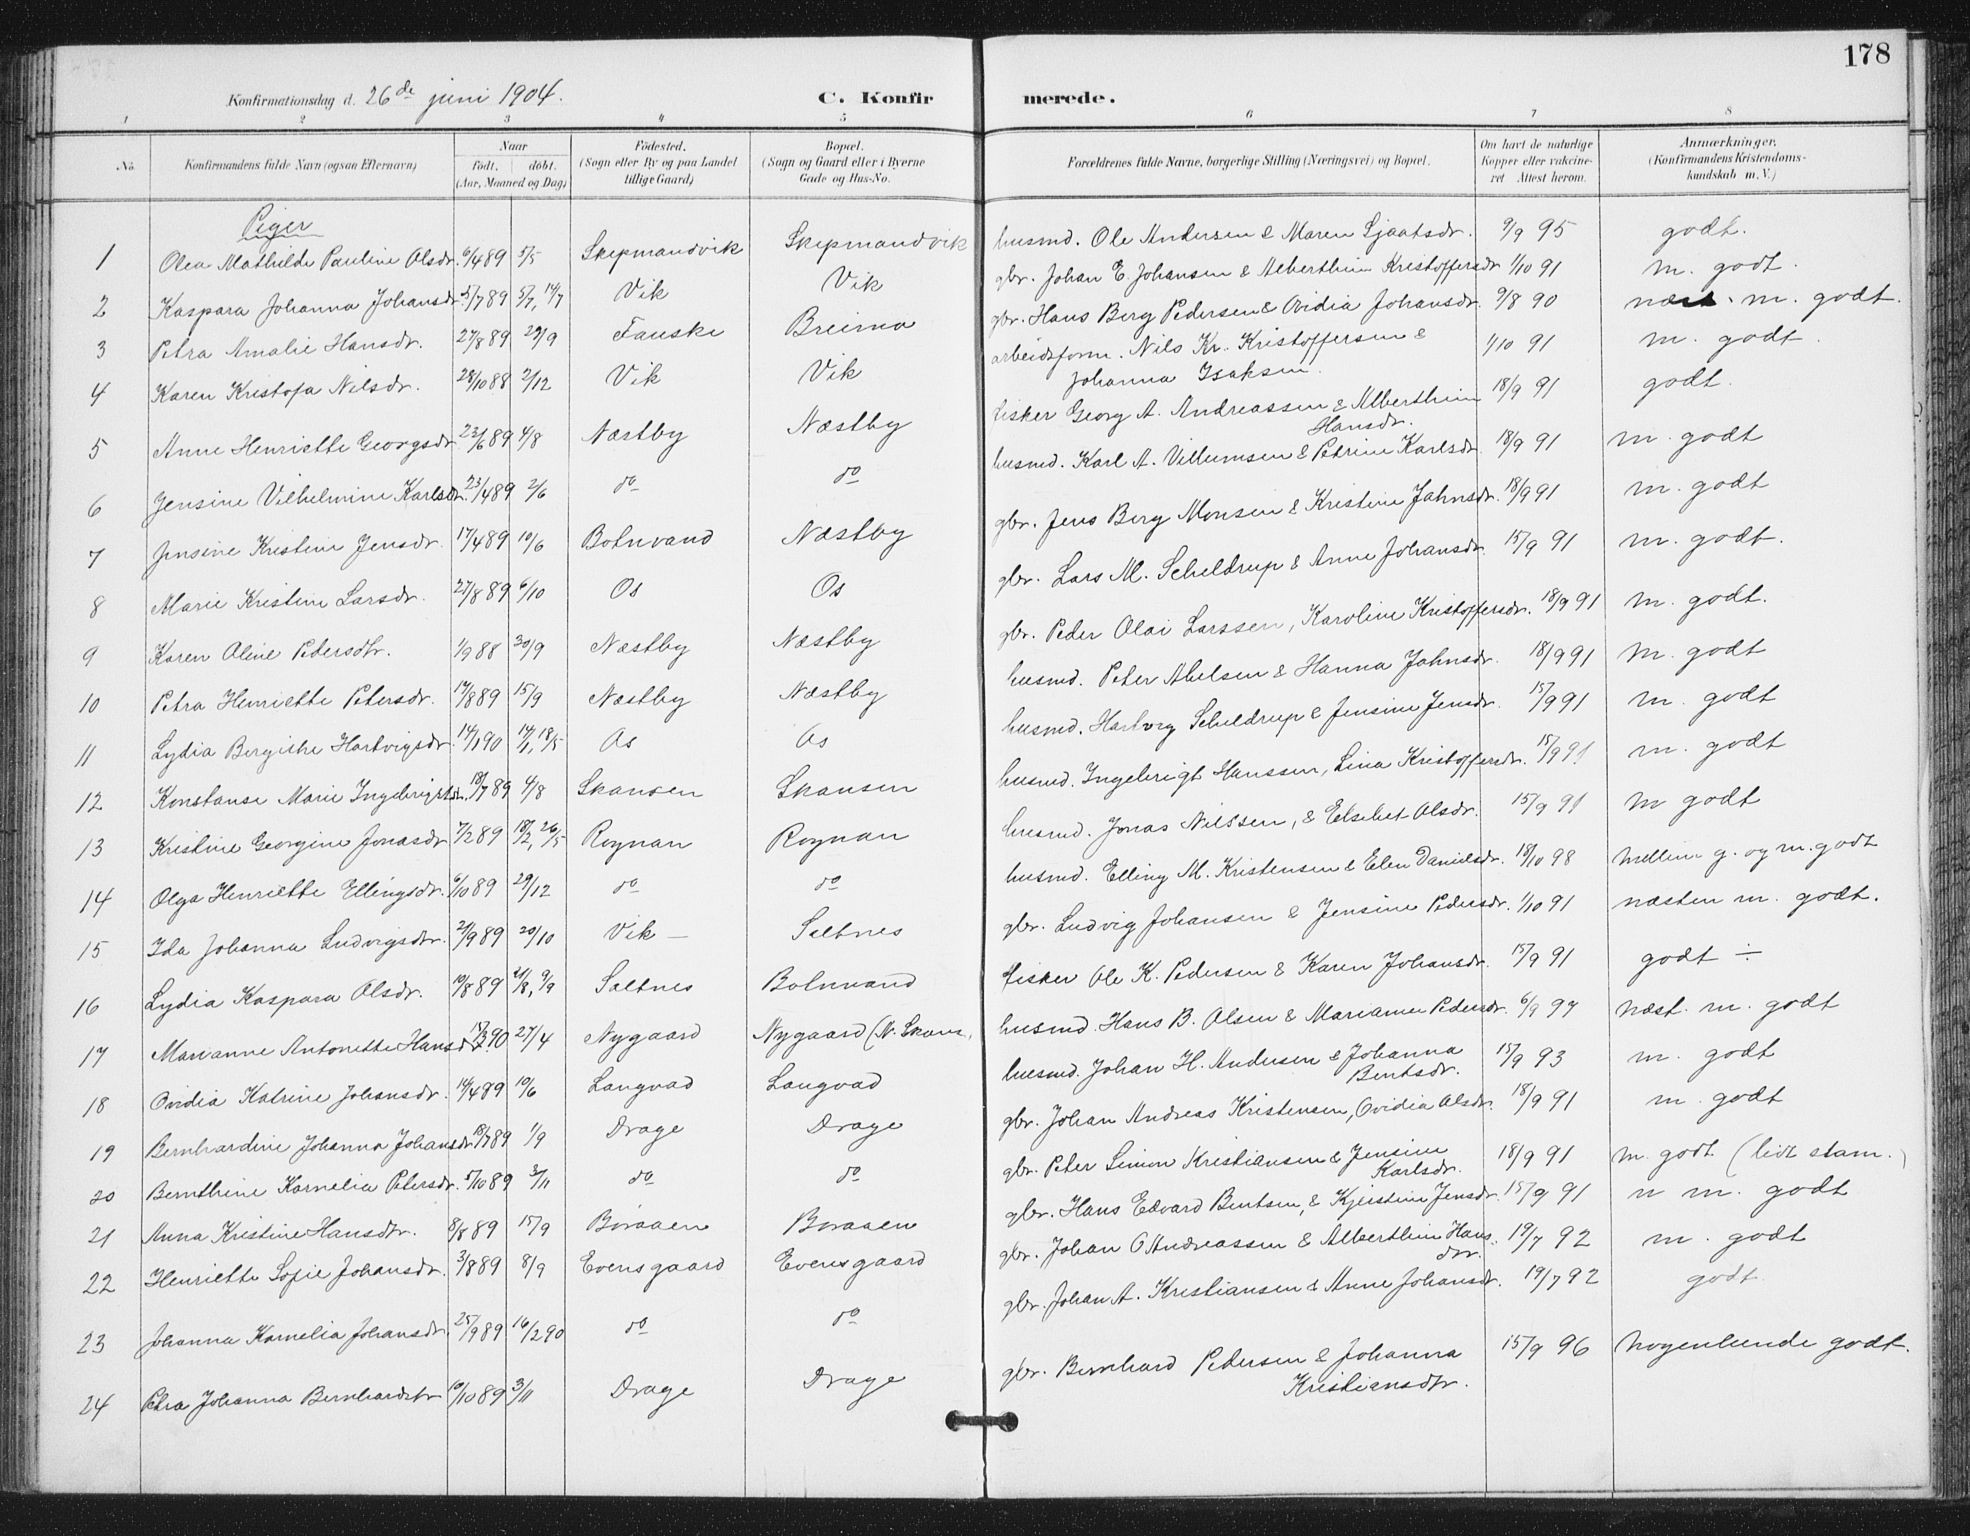 178
Konfirmationsdag d. 26de juni 1904. C. Konfirmerede.
1 2 3 4 5 6 7 8
No. Konfirmandens fulde Navn (ogsaa Efternavn) Naar födt. döbt. (Aar, Maaned og Dag) Födested. (Sogn eller By og paa Landet tillige Gaard) Bopæl. (Sogn og Gaard eller i Byerne Gade og Hus-No. Forældrenes fulde Navne, borgerlige Stilling (Næringsvei) og Bopæl. Om havt de naturlige Kopper eller vakcineret Attest herom. Anmærkninger. (Konfirmandens Kristendomskundskab m. V.)
Piger
1 Olea Mathilde Pauline Olsdr. 6/4 89 5/5 Skepmandvik Skepmandvik husmd. Ole Andersen & Maren Sjaatsdr. 9/9 95 godt.
2 Kaspara Johanna Johansdr. 5/7 89 5/7, 14/7 Vik Vik gbr. Johan E. Johansen & Alberthine Kristoffersdr 1/10 91 m. godt.
3 Petra Amalie Hansdr. 27/8 89 29/9 Fauske Breimo gbr. Hans Berg Pedersen & Ovidia Johansdr. 9/8 90 næst. m. godt.
4 Karen Kristofa Nilsdr. 28/10 88 2/12 Vik Vik arbeidsform. Nils Kr. Kristoffersen & 1/10 91 m. godt.
Johanna Isaksen.
5 Anne Henriette Georgsdr 23/6 89 4/8 Næstby Næstby fisker Georg A. Andreassen & Alberthine 18/9 91 godt.
Hansdr.
6 Jensine Vilhelmine Karlsdr. 23/4 89 2/6 do do husmd. Karl A. Villumsen & Petrine Karlsdr 18/9 91 m. godt
7 Jensine Kristine Jensdr. 17/4 89 10/6 Botnvand Næstby gbr. Jens Berg Monsen & Kristine Jahnsdr. 18/9 91 m. godt
8 Marie Kristine Larsdr. 27/8 89 6/10 Os Os gbr. Lars M. Scheldrup & Anne Johansdr. 15/9 91 m. godt.
9 Karen Oline Pedersdtr. 1/9 88 30/9 Næstby Næstby gbr. Peder Olai Larssen, Karoline Kristoffersdr. 18/9 91 m. godt.
10 Petra Henriette Petersdr. 17/8 89 15/9 Næstby Næstby husmd. Peter Abelsen & Hanna Jahnsdr. 18/9 91 m. godt
11 Lydia Bergithe Hartvigsdr. 14/1 90 14/1, 18/5 Os Os husmd. Hartvig Scheldrup & Jensine Jensdr. 15/9 91 m. godt
12 Konstanse Marie Ingebrigtsdr. 18/7 89 4/8 Skansen Skansen husmd. Ingebrigt Hanssen, Lina Kristoffersdr. 15/9 91 m. godt
13 Kristine Georgine Jonasdr 7/2 89 18/2, 26/5 Rognan Rognan husmd. Jonas Nilssen, & Elsebet Olsdr. 15/9 91 m godt
14 Olga Henriette Ellingsdr. 6/10 89 29/12 do do husmd. Elling M. Kristensen & Elen Danielsdr. 18/10 98 mellem g. og m. godt
15 Ida Johanna Ludvigsdtr. 2/9 89 20/10 Vik Saltnes gbr. Ludvig Johansen & Jensine Pedersdr. 1/10 91 næsten m. godt.
16 Lydia Kaspara Olsdr. 10/8 89 21/8, 9/9 Saltnes Botnvand fisker Ole K. Pedersen & Karen Johansdr. 15/9 91 godt ÷
17 Marianne Antonette Hansdr. 17/3 90 27/4 Nygaard Nygaard (N. Skans. husmd. Hans B. Olsen & Marianne Pedersdr. 6/9 97 næst. m. godt
18 Ovidia Katrine Johansdr. 14/4 89 10/6 Langvad Langvad husmd. Johan H. Andersen & Johanna 15/9 93 m. godt
Bentsdr.
19 Bernhardine Johanna Johansdr. 18/7 89 1/9 Drage Drage gbr. Johan Andreas Kristensen, Ovidia Olsdr. 18/9 91 m. godt
20 Bernthine Kornelia Petersdr. 5/10 89 3/11 do do gbr. Peter Simon Kristiansen & Jensine 18/9 91 m. godt (lidt stam.)
Karlsdr.
21 Anna Kristine Hansdtr. 8/8 89 15/9 Boraaen Boraaen gbr. Hans Edvard Bentsen & Kjerstine Jensdr. 15/9 91 n m. godt
22 Henriette Sofie Johansdr. 3/8 89 8/9 Evensgaard Evensgaard gbr. Johan O Andreassen & Alberthine Hans- 19/7 92 m. godt
dtr.
23 Johanna Kornelia Johansdr. 25/9 89 16/2 90 do do gbr. Johan A. Kristiansen & Anne Johansdr. 19/7 92 godt
24 Petra Johanna Bernhardsdr 10/10 89 3/11 Drage Drage gbr. Bernhard Pedersen & Johanna 15/9 96 nogenlunde godt.
Kristiansdtr.